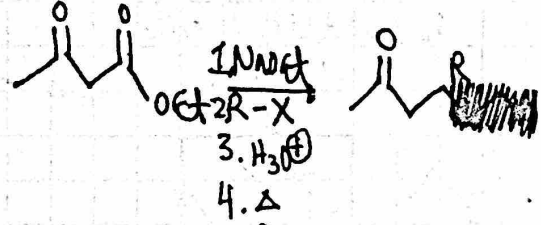 O O
OEt
1 NaOEt
2 R-X
3. H₃O⊕
4. Δ
O
R